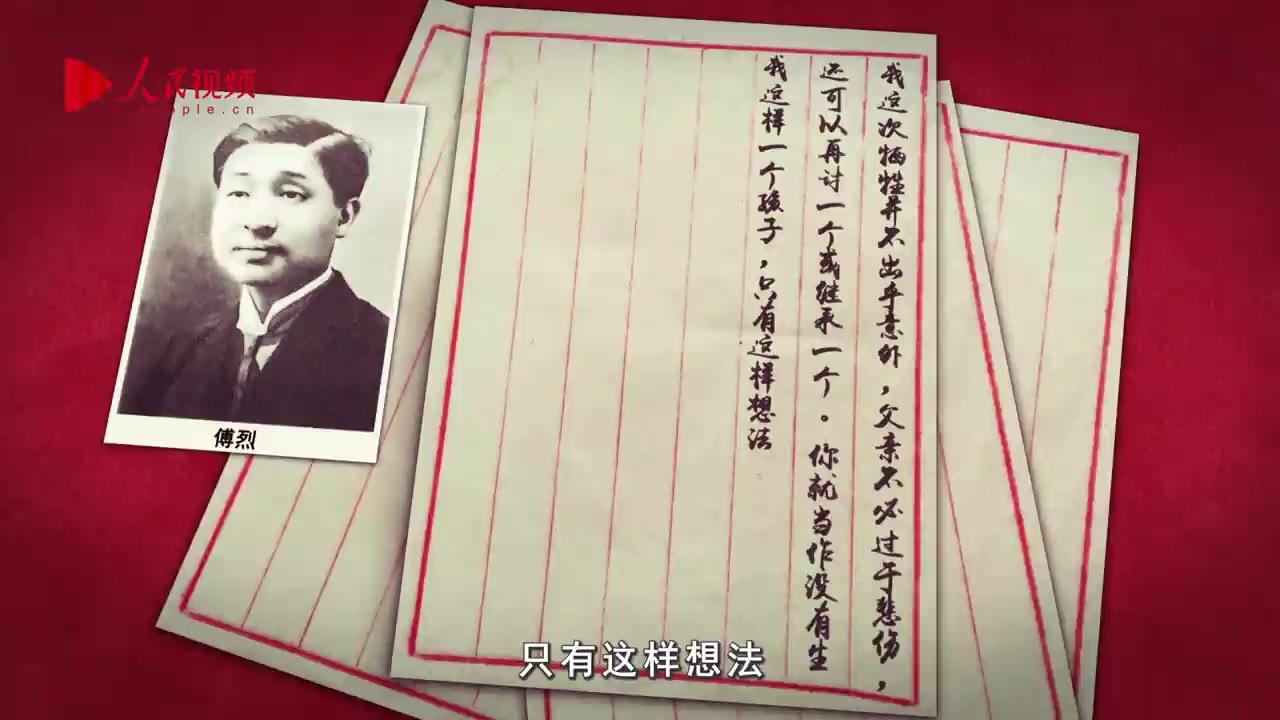 人民视频
people.cn
傅烈
我这次牺牲并不出乎意外，父亲不必过于悲伤，
还可以再讨一个或继承一个。你就当作没有生
我这样一个孩子，只有这样想法
只有这样想法